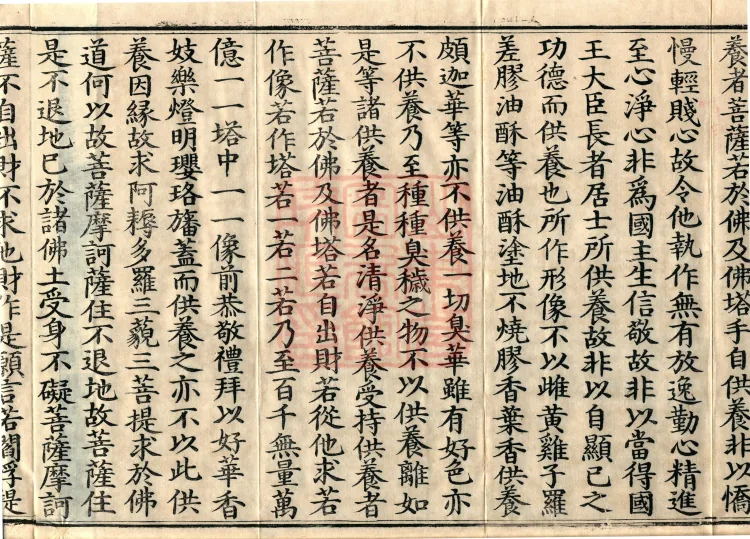 養者菩薩若於佛及佛塔手自供養非以憍
慢輕賤心故令他執作無有放逸勤心精進
至心淨心非爲國主生信敬故非以當得國
王大臣長者居士所供養故非以自顯己之
功德而供養也所作形像不以雌黃雞子羅
差膠油酥等油酥塗地不燒膠香葉香供養
頗迦華等亦不供養一切臭華雖有好色亦
不供養乃至種種臭穢之物不以供養離如
是等諸供養者是名清淨供養受持供養者
菩薩若於佛及佛塔若自出財若從他求若
作像若作塔若一若二若乃至百千無量萬
億一一塔中一一像前恭敬禮拜以好華香
妓樂燈明瓔珞旛蓋而供養之亦不以此供
養因緣故求阿耨多羅三藐三菩提求於佛
道何以故菩薩摩訶薩住不退地故菩薩住
是不退地已於諸佛土受身不礙菩薩摩訶
薩不自出財不求他財作是願言若閻浮提